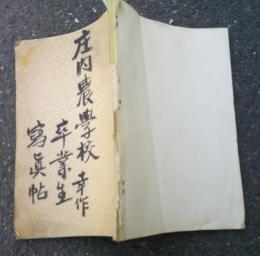 庄内農學校 幸作
卒業生
寫眞帖